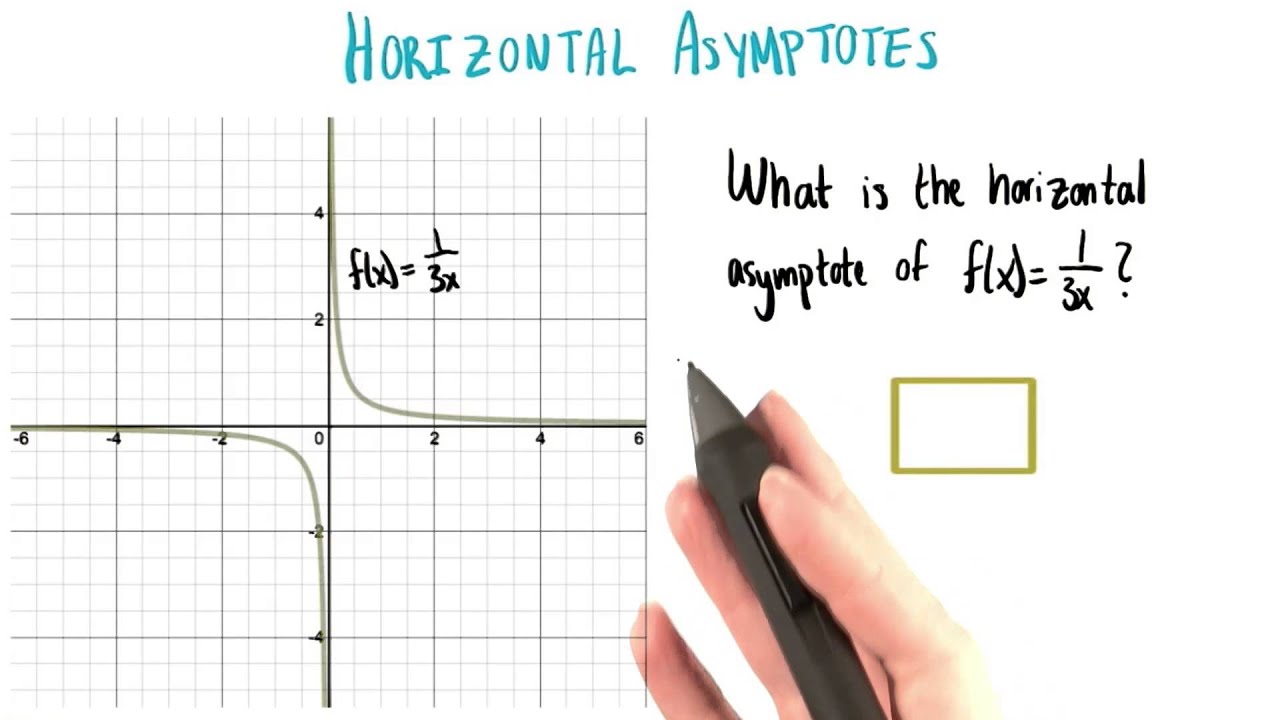 HORIZONTAL ASYMPTOTES
What is the horizontal
asymptote of f(x)=1/3x?
f(x)=1/3x
4
2
-6 -4 -2 0 2 4 6
-2
-4